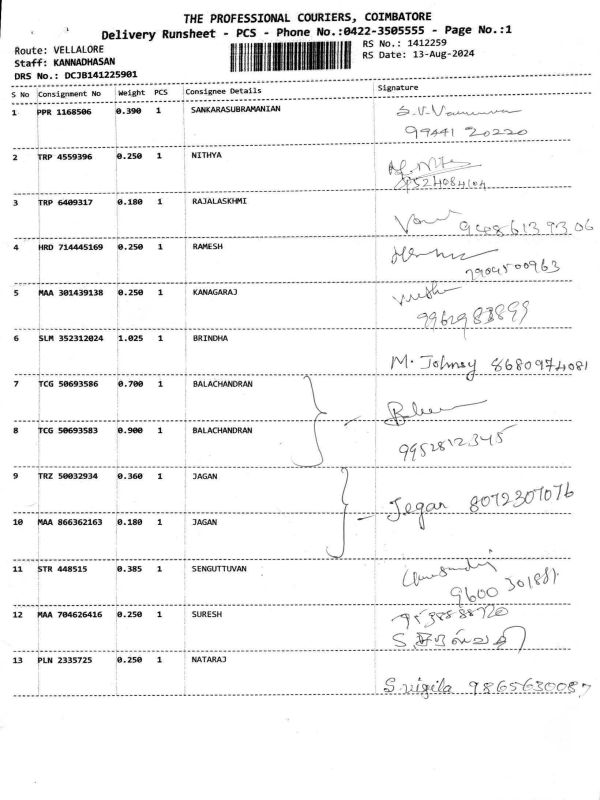 THE PROFESSIONAL COURIERS, COIMBATORE
Delivery Runsheet - PCS - Phone No.:0422-3505555 - Page No.:1
Route: VELLALORE
RS No.: 1412259
Staff: KANNADHASAN
RS Date: 13-Aug-2024
DRS No.: DCJB141225901
S No Consignment No Weight PCS Consignee Details Signature
1 PPR 1168506 0.390 1 SANKARASUBRAMANIAN
99441 20220
2 TRP 4559396 0.250 1 NITHYA
3 TRP 6409317 0.180 1 RAJALASKHMI
9486139306
4 HRD 714445169 0.250 1 RAMESH
7904500963
5 MAA 301439138 0.250 1 KANAGARAJ
6 SLM 352312024 1.025 1 BRINDHA
M. Johnsy 8680974081
7 TCG 50693586 0.700 1 BALACHANDRAN
8 TCG 50693583 0.900 1 BALACHANDRAN
9952812345
9 TRZ 50032934 0.360 1 JAGAN
Jegan 8072307076
10 MAA 866362163 0.180 1 JAGAN
11 STR 448515 0.385 1 SENGUTTUVAN
12 MAA 704626416 0.250 1 SURESH
13 PLN 2335725 0.250 1 NATARAJ
S.vigila 9865630087